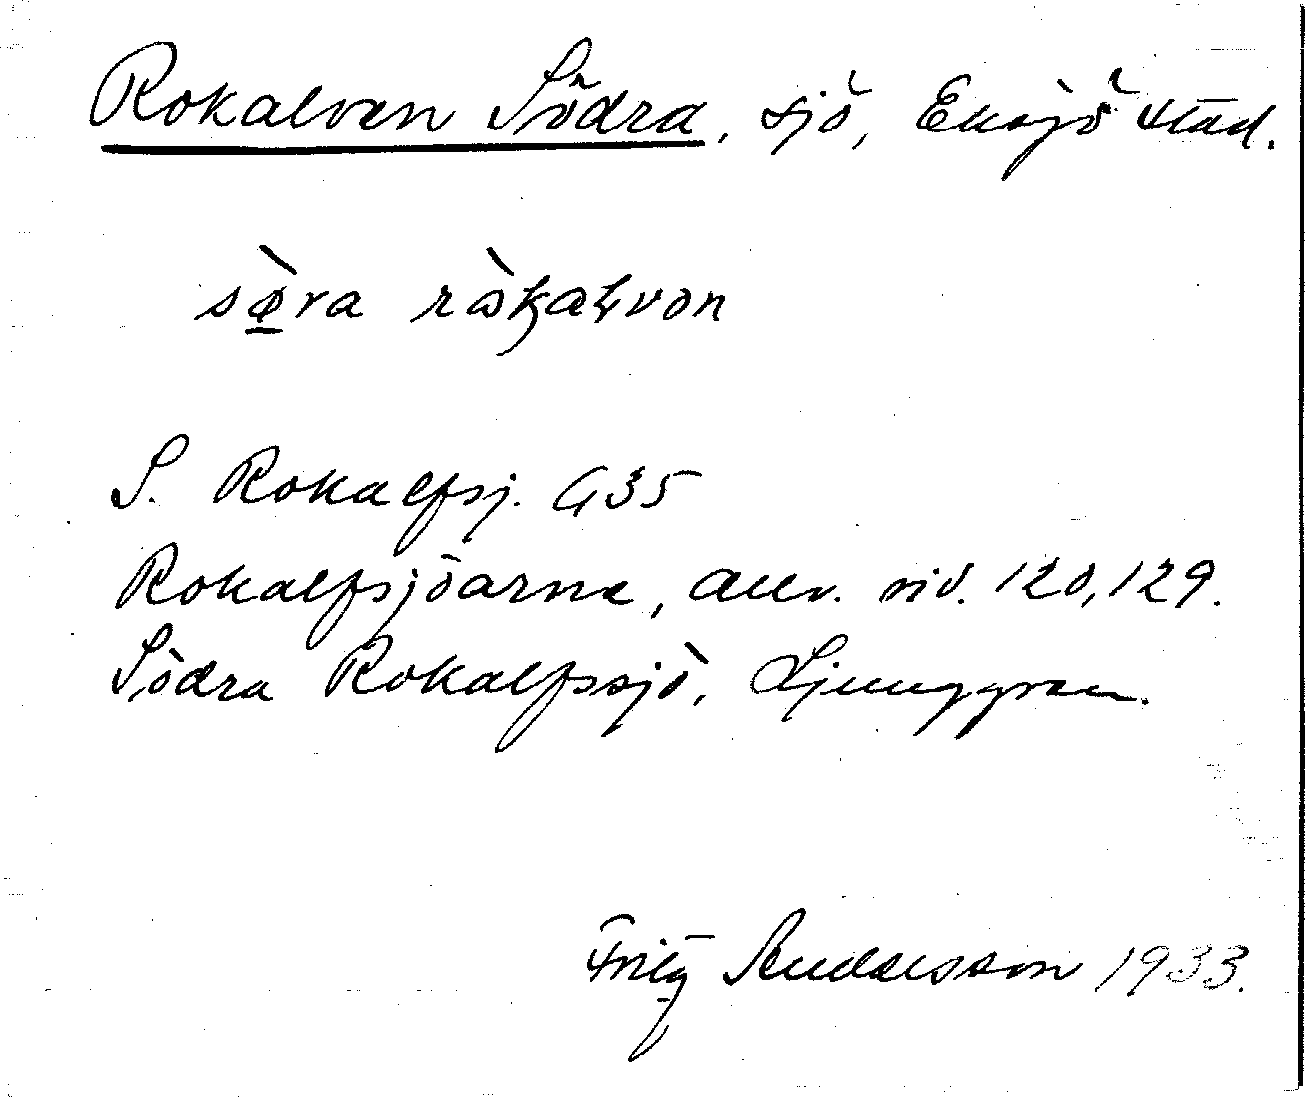 Rokalven Södra, sjö, Eksjö stad.
sø̀ra ràkalvən
S. Rokalfsj. G35
Rokalfsjöarne, Allv. vid. 120, 129.
Södra Rokalfssjö, Ljunggren.
Fritz Andersson 1933.